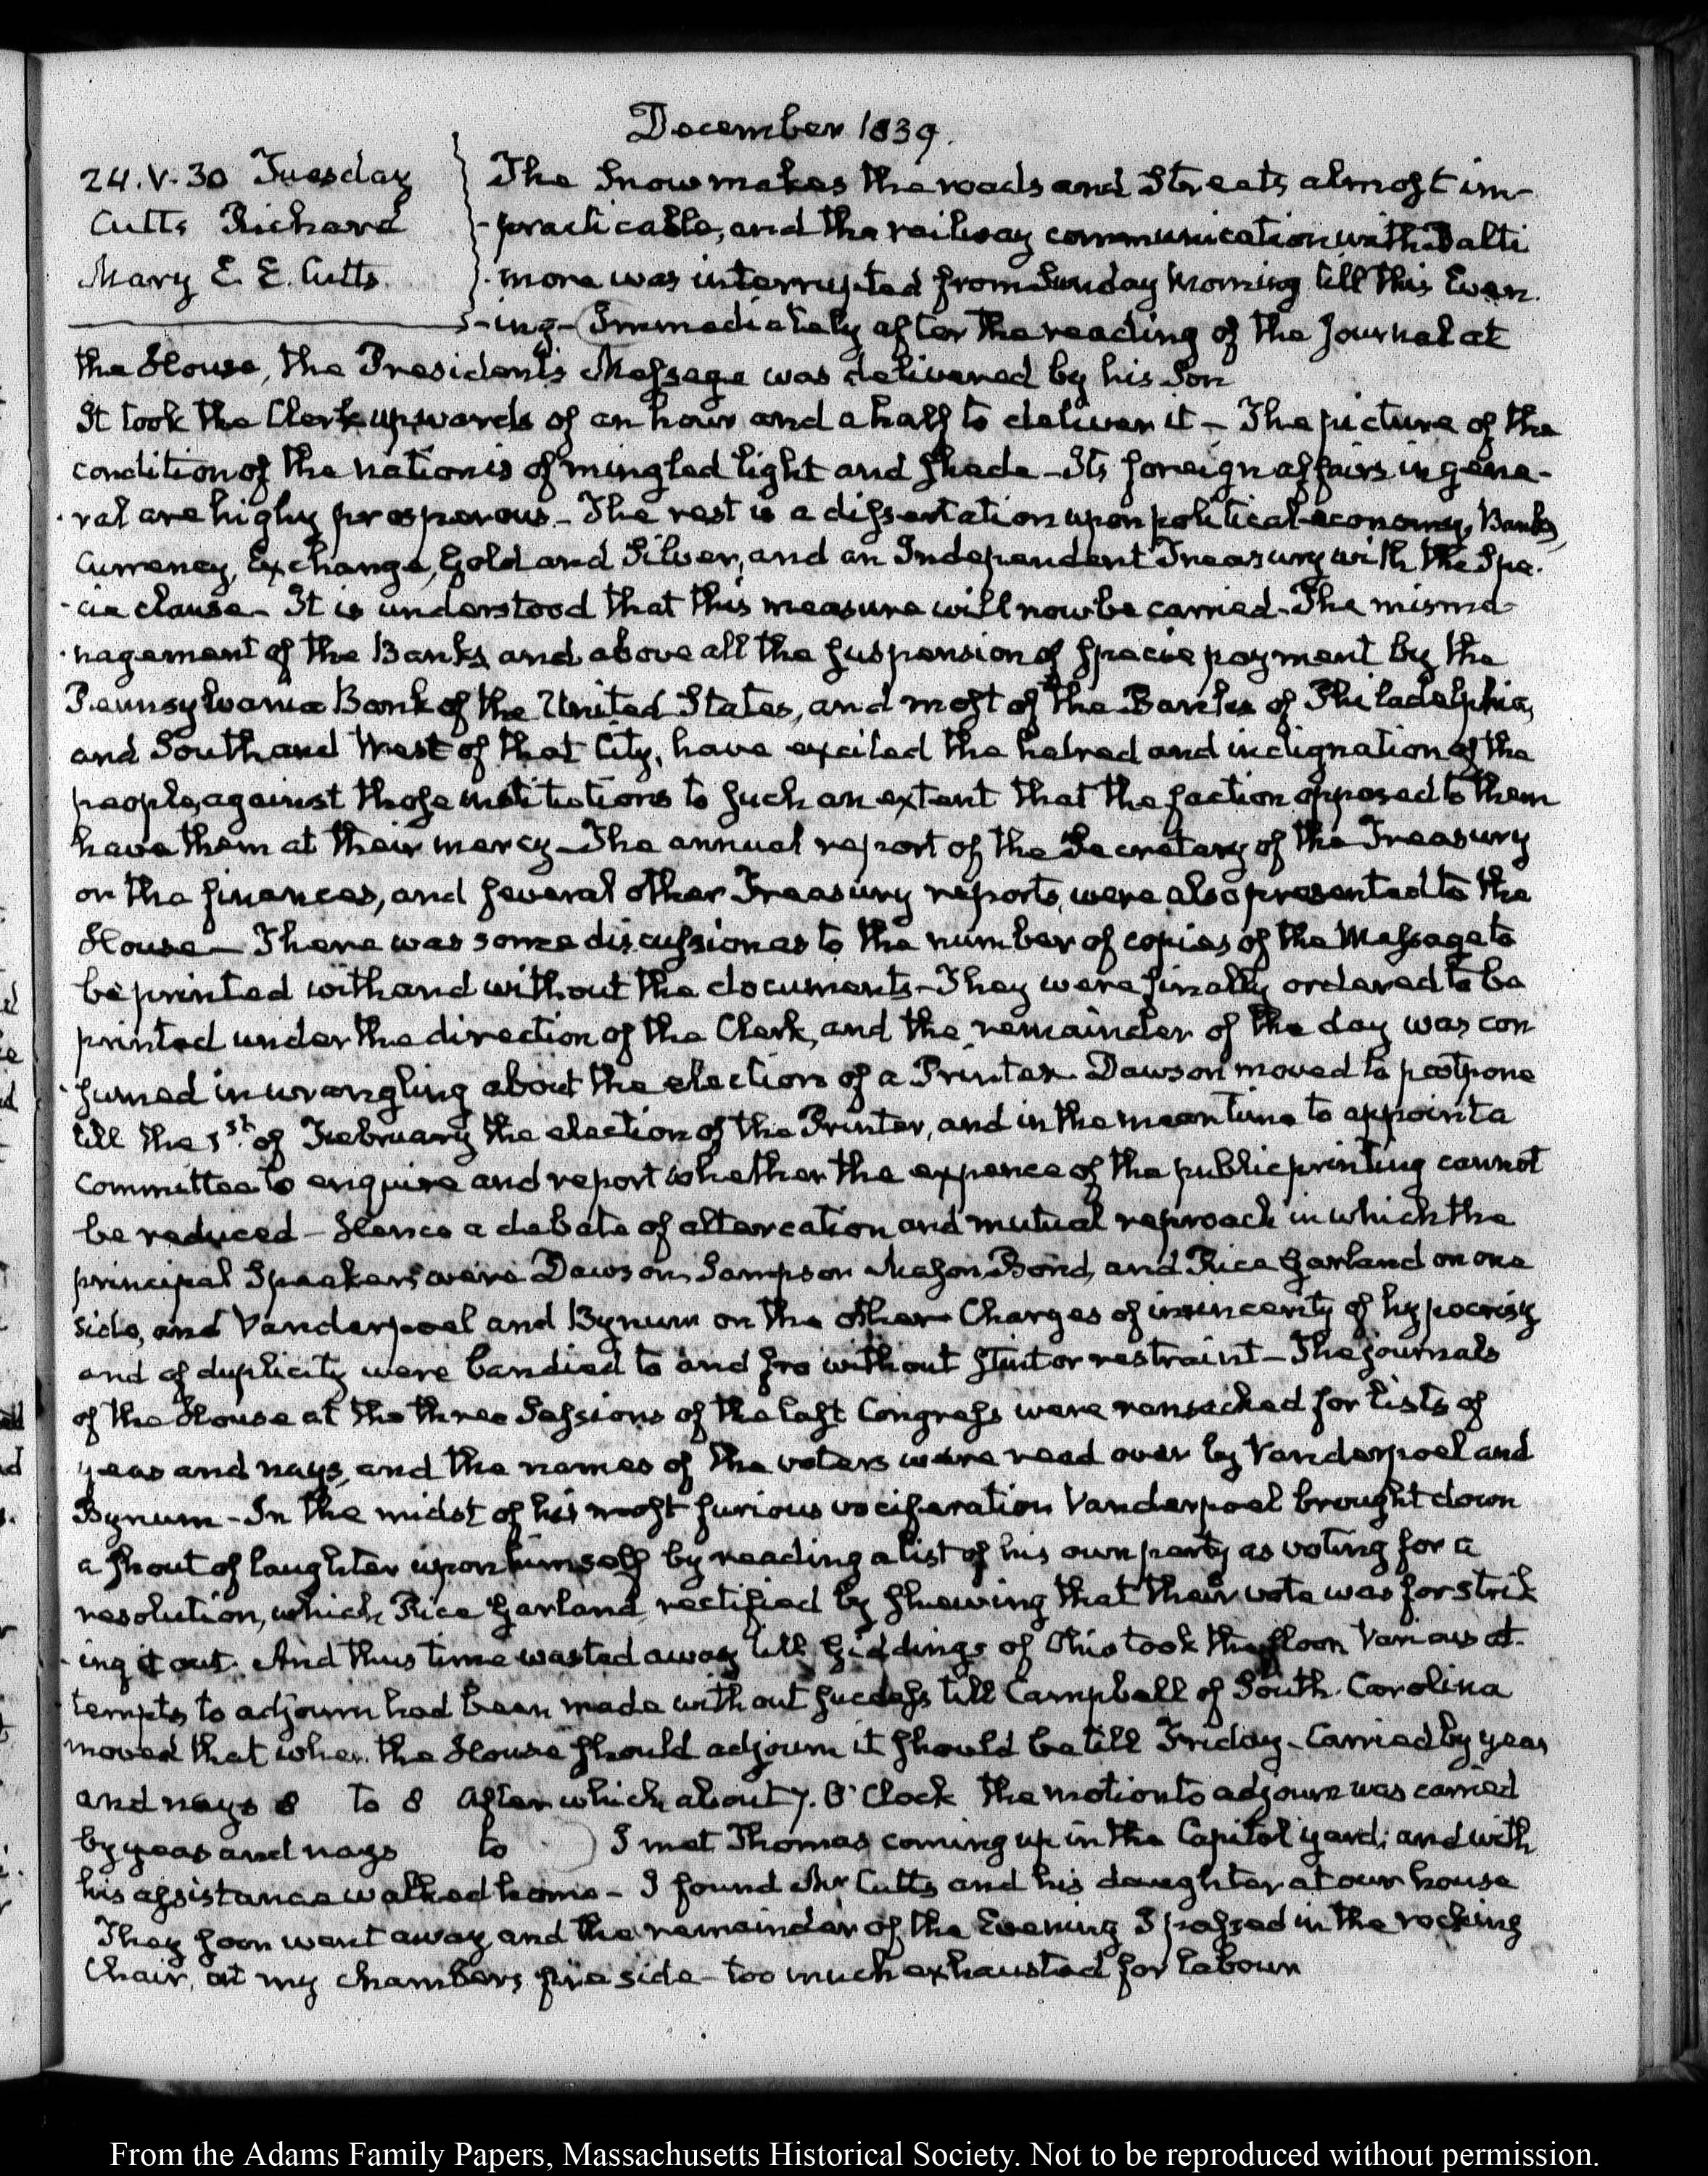 December 1839.
24. V. 30 Tuesday
Cutts Richard
Mary E. E. Cutts.
The Snow makes the roads and Streets almost im-
-practicable, and the railway communication with Balti
-more was interrupted from Sunday Morning till this Even-
-ing- Immediately after the reading of the Journal at
the House, the President's Message was delivered by his Son
It took the Clerk upwards of an hour and a half to deliver it - The picture of the
condition of the nation is of mingled light and shade - Its foreign affairs in gene-
-ral are highly prosperous - The rest is a dissertation upon political economy, Banks,
Currency, Exchange, Gold and Silver, and an Independent Treasury with the Spe-
-cie clause - It is understood that this measure will now be carried. The misma-
-nagement of the Banks, and above all the suspension of specie payment by the
Pennsylvania Bank of the United States, and most of the Banks of Philadelphia,
and South and West of that City, have excited the hatred and indignation of the
people, against those institutions to such an extent that the faction opposed to them
have them at their mercy - The annual report of the Secretary of the Treasury
on the finances, and several other Treasury reports, were also presented to the
House - There was some discussion as to the number of copies of the Message to
be printed with and without the documents - They were finally ordered to be
printed under the direction of the Clerk, and the remainder of the day was con
-sumed in wrangling about the election of a Printer. Dawson moved to postpone
till the 1st. of February the election of the Printer, and in the mean time to appoint a
Committee to enquire and report whether the expence of the public printing cannot
be reduced - Hence a debate of altercation and mutual reproach in which the
principal Speakers were Dawson, Sampson Mason, Bond, and Rice Garland on one
side, and Vanderpoel and Bynum on the other. Charges of insincerity of hypocrisy
and of duplicity were bandied to and fro without stint or restraint - The journals
of the House at the three Sessions of the last Congress were ransacked for lists of
yeas and nays, and the names of the voters were read over by Vanderpoel and
Bynum - In the midst of his most furious vociferation Vanderpoel brought down
a shout of laughter upon himself by reading a list of his own party as voting for a
resolution, which Rice Garland rectified by shewing that their vote was for strik
-ing it out. And thus time wasted away till Giddings of Ohio took the floor Various at-
tempts to adjourn had been made without success till Campbell of South Carolina
moved that when the House should adjourn it should be till Friday - Carried by yeas
and nays 8 to 8 After which about 7. O'Clock the motion to adjourn was carried
by yeas and nays to ) I met Thomas coming up in the Capitol yard; and with
his assistance walked home - I found Mr Cutts and his daughter at our house
They soon went away and the remainder of the Evening I passed in the rocking
Chair, at my chambers fire side - too much exhausted for labour
From the Adams Family Papers, Massachusetts Historical Society. Not to be reproduced without permission.